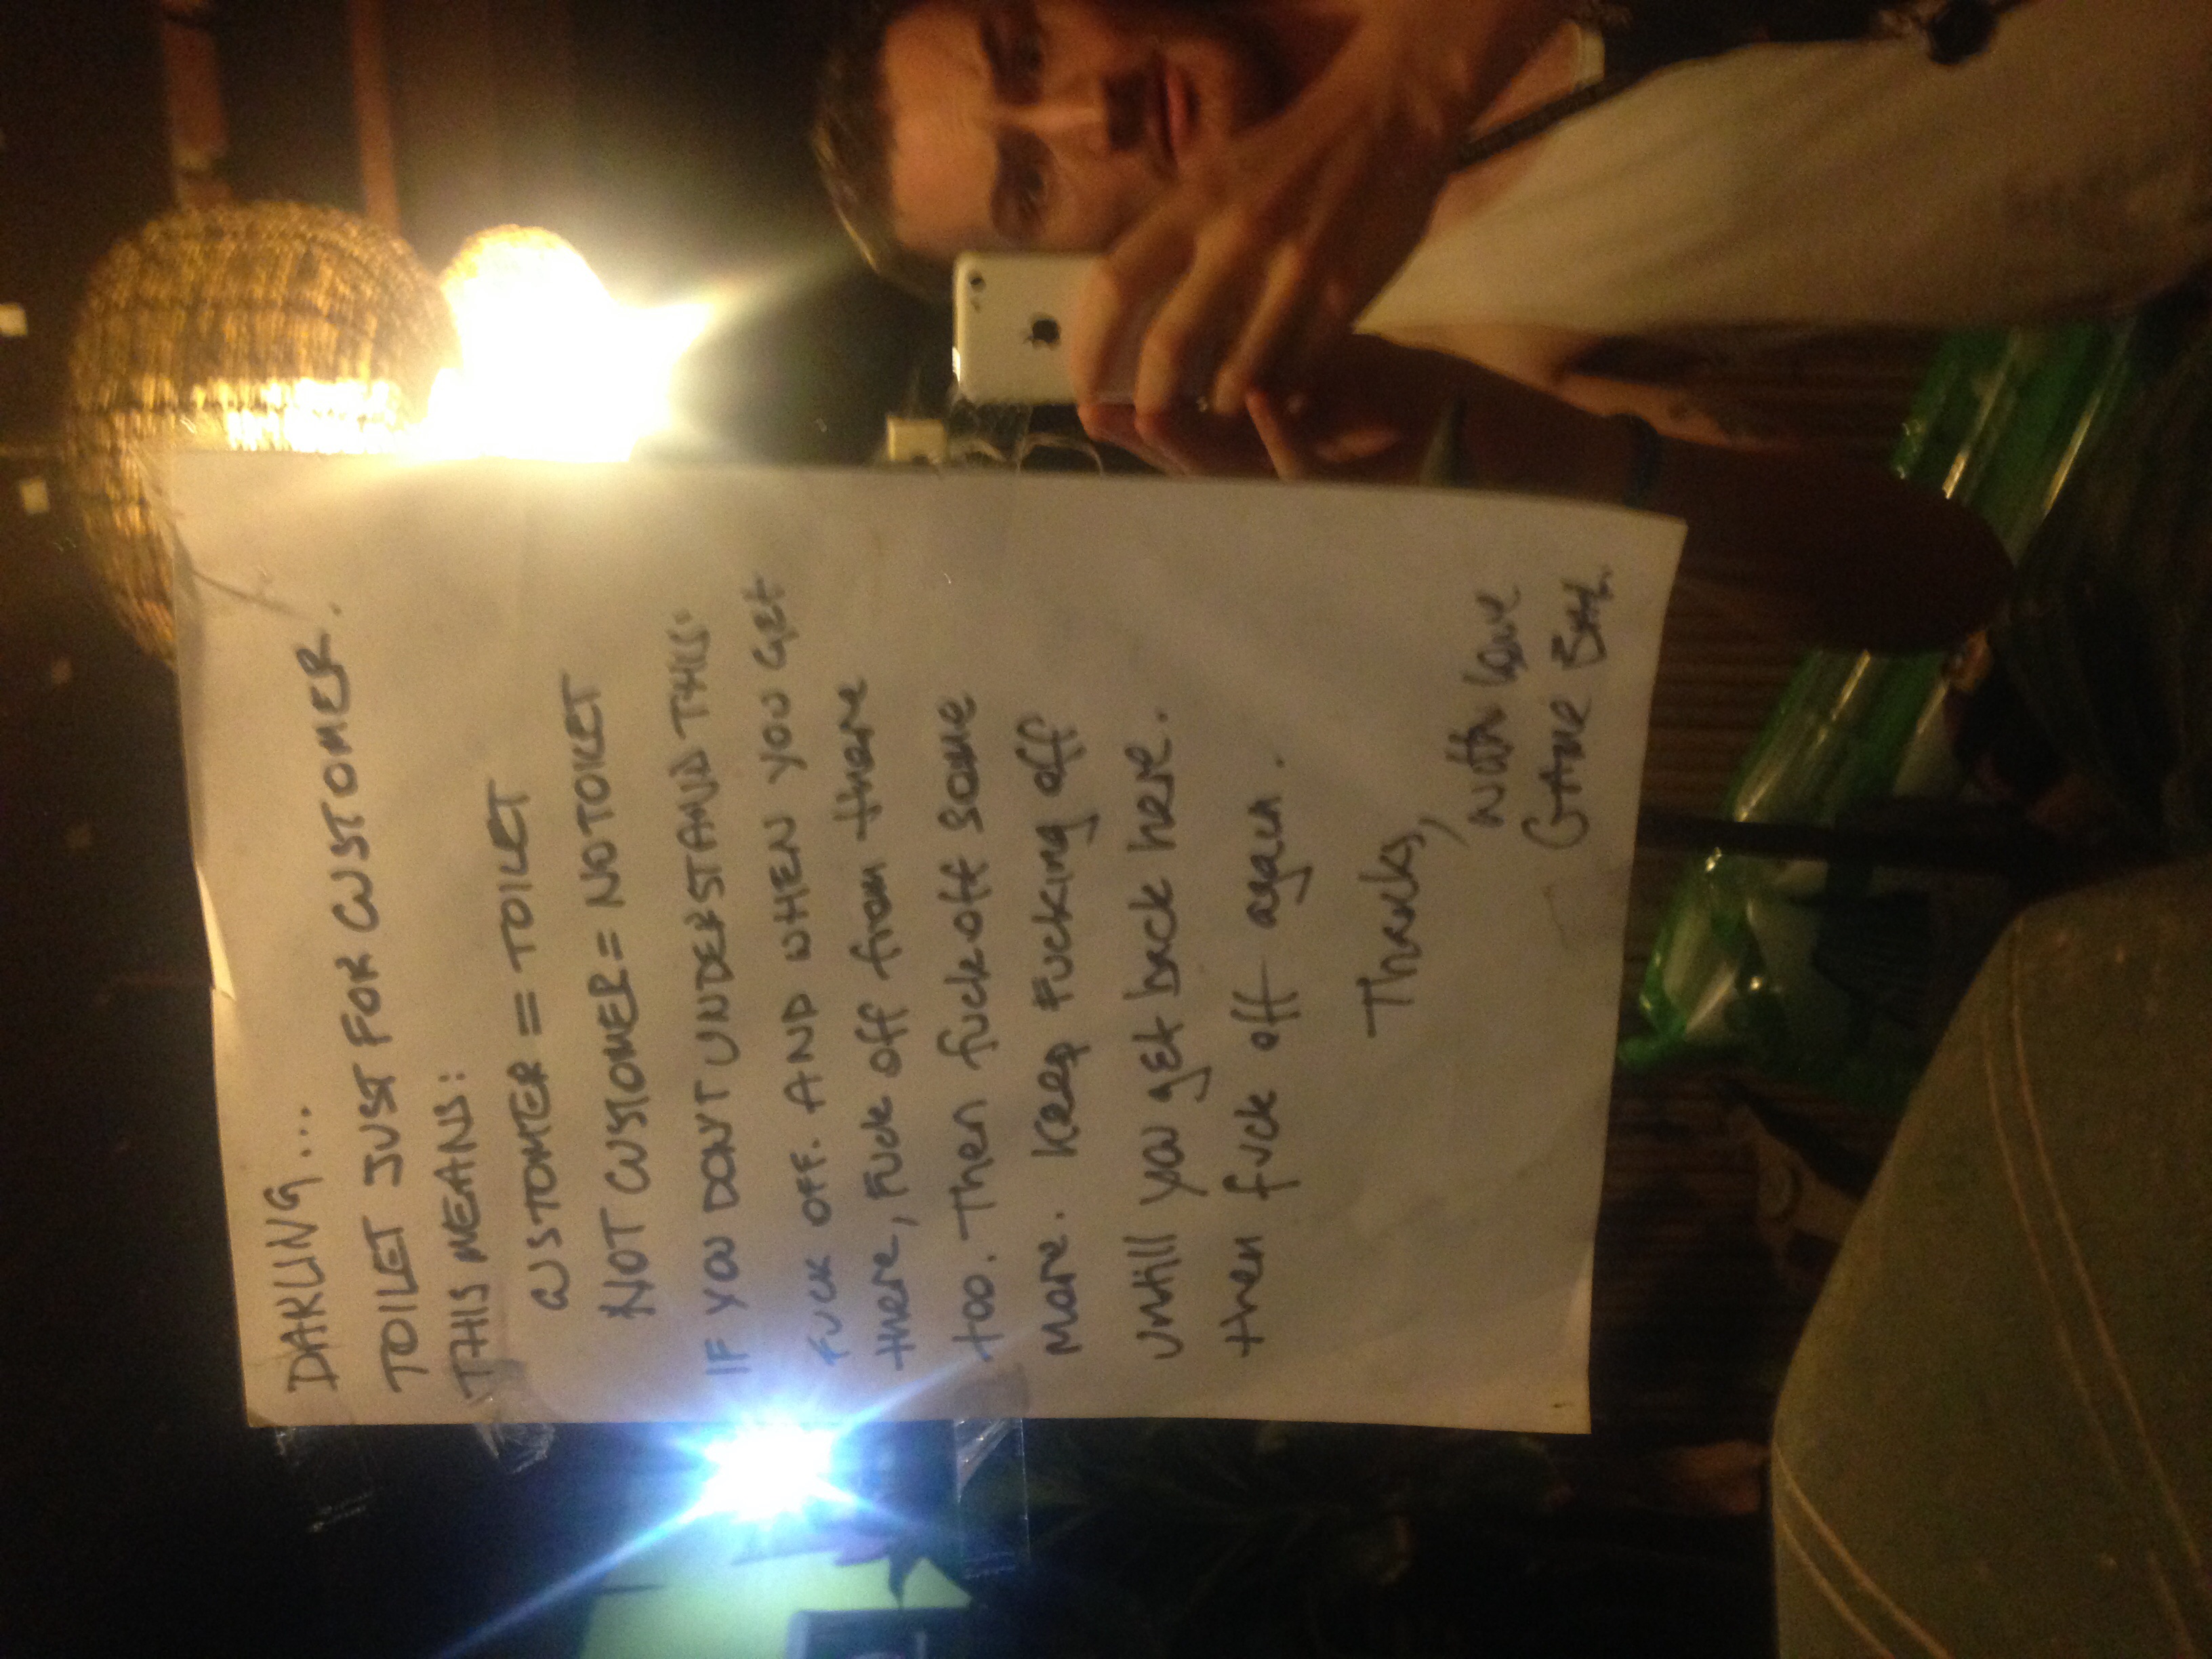 DARLING...
TOILET JUST FOR CUSTOMER.
THIS MEANS:
CUSTOMER = TOILET
NOT CUSTOMER = NO TOILET
IF YOU DON'T UNDERSTAND THIS:
FUCK OFF. AND WHEN YOU GET
there, Fuck off from there
too. Then fuck off some
More. Keep Fucking off
Untill you get back here.
then fuck off again.
Thanks,
with love